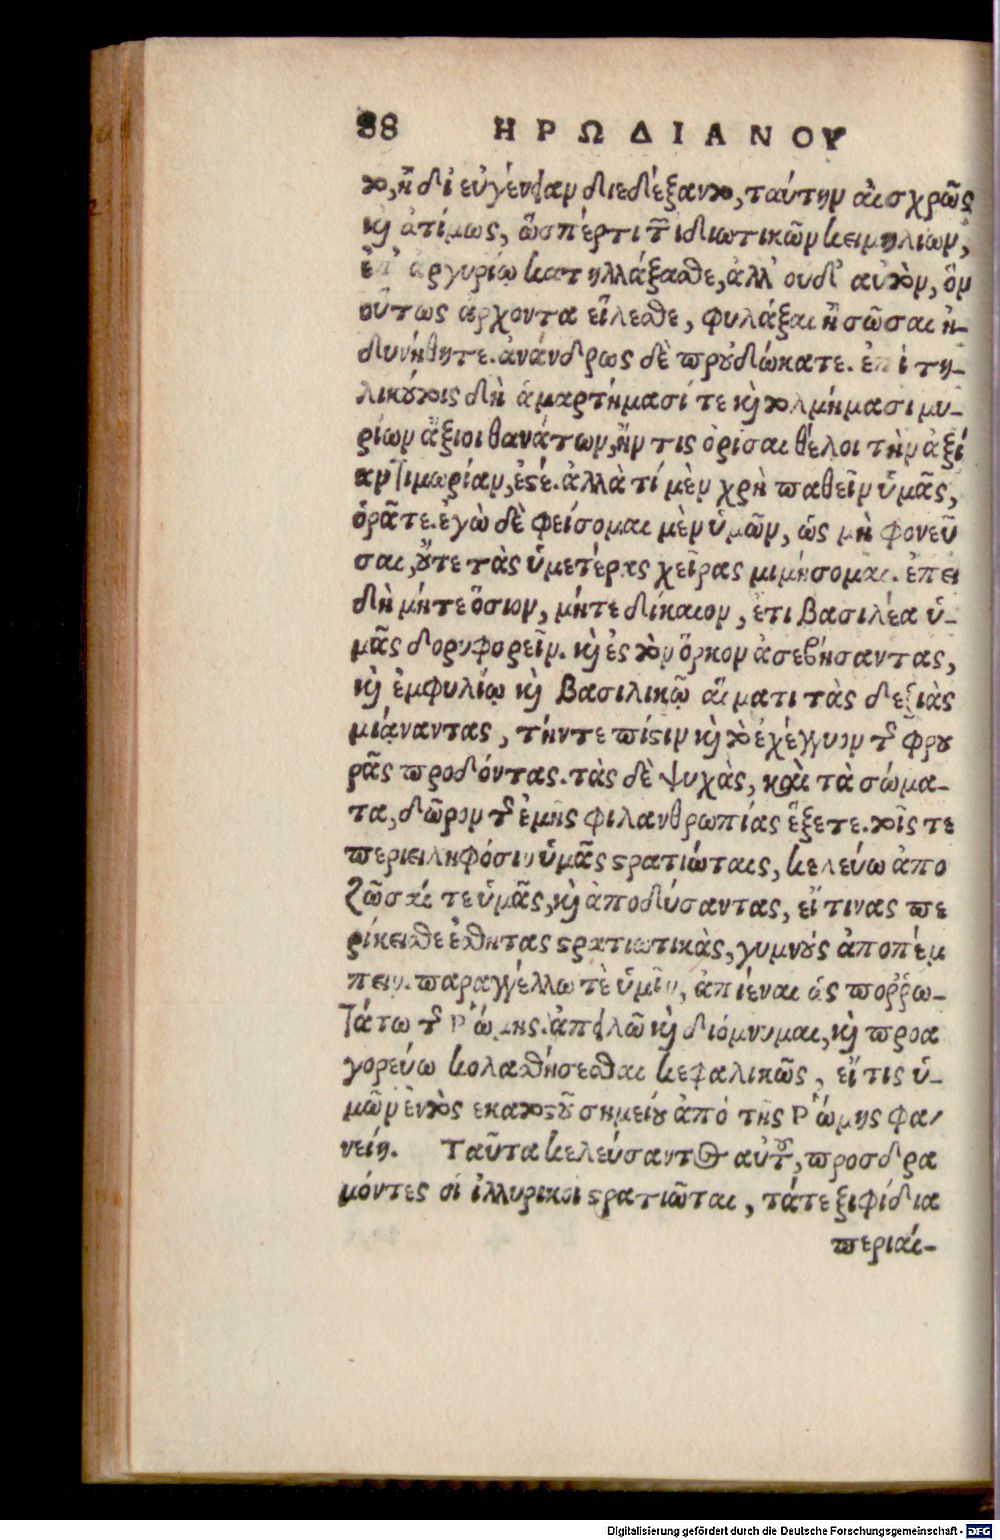 88 ΗΡΩΔΙΑΝΟΥ
το, ἢ δι' εὐγένειαν διεδέξαντο, ταύτην αἰσχρῶς
καὶ ἀτίμως, ὥσπέρ τι τῶν ἰδιωτικῶν κειμηλίων,
ἐπ' ἀργυρίῳ κατηλλάξασθε, ἀλλ' ουδ' αὐτὸν, ὃν
οὕτως ἄρχοντα εἵλεσθε, φυλάξαι ἢ σῶσαι ἠ-
δυνήθητε. ἀνάνδρως δὲ προυδώκατε. ἐπὶ τη-
λικούτοις δὴ ἁμαρτήμασί τε καὶ τολμήμασι μυ-
ρίων ἄξιοι θανάτων, ἤν τις ὁρίσαι θέλοι τὴν ἀξί
αν τιμωρίαν, ἐστέ. ἀλλὰ τί μὲν χρὴ παθεῖν ὑμᾶς,
ὁρᾶτε. ἐγὼ δὲ φείσομαι μὲν ὑμῶν, ὡς μὴ φονεῦ
σαι, οὔτε τὰς ὑμετέρας χεῖρας μιμήσομαι. ἐπει
δὴ μήτε ὅσιον, μήτε δίκαιον, ἔτι βασιλέα ὑ-
μᾶς δορυφορεῖν. καὶ ἐς τὸν ὅρκον ἀσεβήσαντας,
καὶ ἐμφυλίῳ καὶ βασιλικῷ αἵματι τὰς δεξιὰς
μιάναντας, τήν τε πίστιν καὶ τὸ ἐχέγγυον τῆς φρου
ρᾶς προδόντας. τὰς δὲ ψυχὰς, καὶ τὰ σώμα-
τα, δῶρον τῆς ἐμῆς φιλανθρωπίας ἕξετε. τοῖς τε
περιειληφόσιν ὑμᾶς στρατιώταις, κελεύω ἀπο
ζῶσαί τε ὑμᾶς, καὶ ἀποδύσαντας, εἴ τινας πε
ρίκεισθε ἐσθῆτας στρατιωτικὰς, γυμνοὺς ἀποπέμ
πειν. παραγγέλλω τὲ ὑμῖν, ἀπιέναι ὡς πορῤῥω-
τάτω τῆς Ῥώμης. ἀπειλῶ καὶ διόμνυμαι, καὶ προα
γορεύω κολασθήσεσθαι κεφαλικῶς, εἴ τις ὑ-
μῶν ἐντὸς εκατοστοῦ σημείου ἀπὸ τῆς Ῥώμης φα-
νείη. Ταῦτα κελεύσαντος αὐτοῦ, προσδρα
μόντες οἱ ἰλλυρικοὶ στρατιῶται, τά τε ξιφίδια
περιαί-
Digitalisierung gefördert durch die Deutsche Forschungsgemeinschaft - DFG